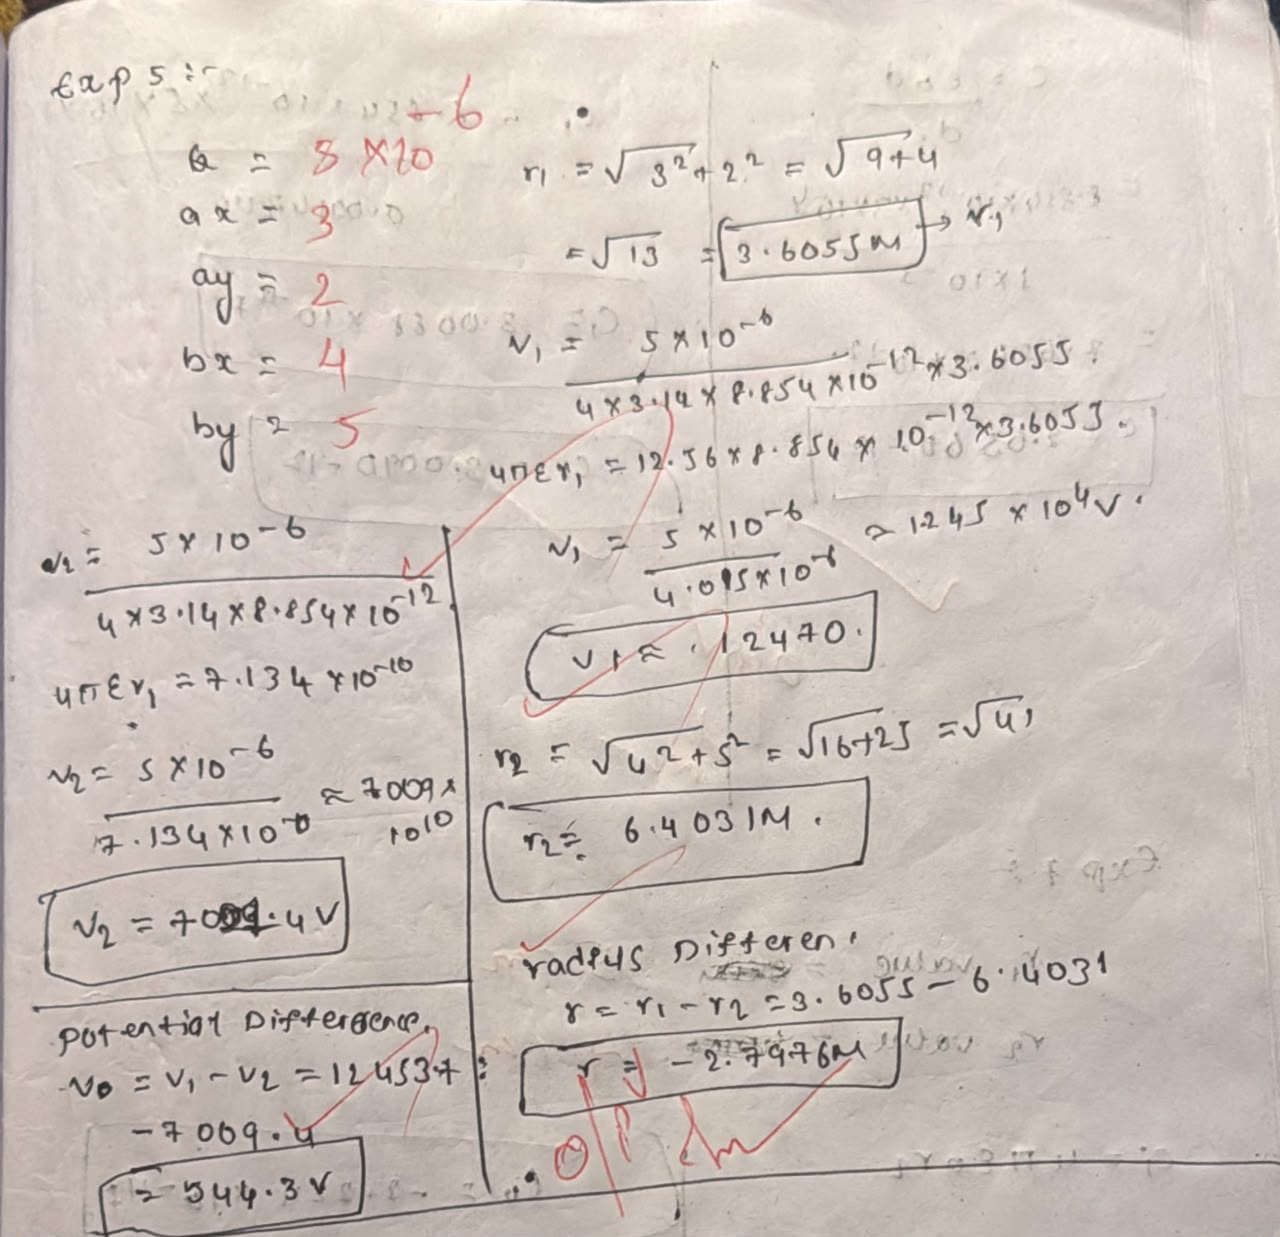 Exp 5 :-
Q = 5 × 10 -6
ax = 3
ay = 2
bx = 4
by = 5
r₁ = √3² + 2² = √9+4
= √13 = 3.6055M → r₁
V₁ = 5 × 10⁻⁶
4 × 3.14 × 8.854 × 10⁻¹² × 3.6055.
4πεr₁ = 12.56 × 8.854 × 10⁻¹² × 3.6055.
V₁ = 5 × 10⁻⁶ ≈ 1.245 × 10⁴ V.
4.015 × 10⁻⁶
V₁ ≈ .12470.
r₂ = √4² + 5² = √16+25 = √41
r₂ = 6.4031M.
radius Differen.
r = r₁ - r₂ = 3.6055 - 6.4031
r = -2.7976M
V₂ = 5 × 10⁻⁶
4 × 3.14 × 8.854 × 10⁻¹²
4πεr₁ = 7.134 × 10⁻¹⁰
V₂ = 5 × 10⁻⁶ ≈ 7009 ×
10¹⁰
V₂ = 7009.4 V
Potential Difference.
V₀ = V₁ - V₂ = 12453.7
- 7009.4
= 544.3 V
O/P